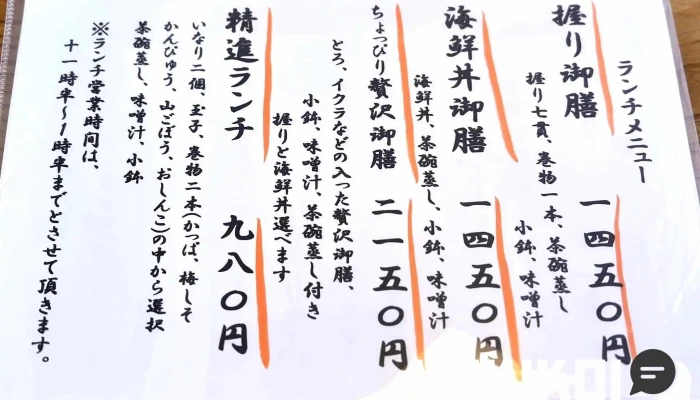 ランチメニュー
握り御膳 一四五〇円
握り七貫、巻物一本、茶碗蒸し
小鉢、味噌汁
海鮮丼御膳 一四五〇円
海鮮丼、茶碗蒸し、小鉢、味噌汁
ちょっぴり贅沢御膳 二一五〇円
とろ、イクラなどの入った贅沢御膳、
小鉢、味噌汁、茶碗蒸し付き
握りと海鮮丼選べます
精進ランチ 九八〇円
いなり二個、玉子、巻物二本(かっぱ、梅しそ
かんぴゅう、山ごぼう、おしんこ)の中から選択
茶碗蒸し、味噌汁、小鉢
※ランチ営業時間は、
十一時半〜1時半までとさせて頂きます。